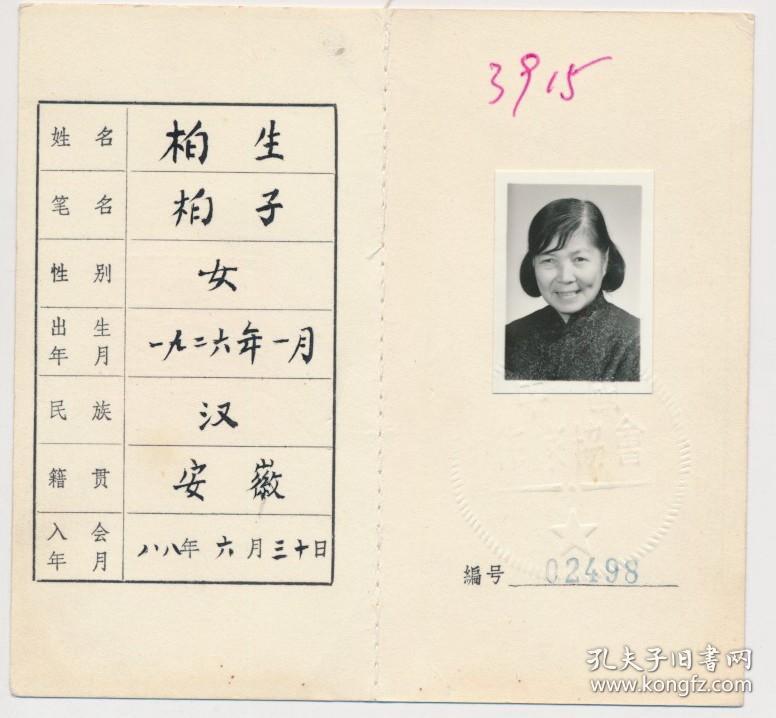 姓名 柏生
笔名 柏子
性别 女
出生年月 一九二六年一月
民族 汉
籍贯 安徽
入会年月 八八年六月三十日
3915
會
編号 02498
孔夫子旧书网
www.kongfz.com